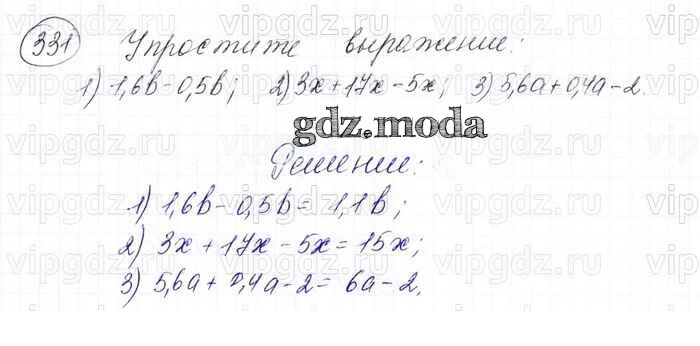 331 Упростите выражение:
1) 1,6b-0,5b; 2) 3x+17x-5x; 3) 5,6a+0,4a-2.
gdz.moda
Решение:
1) 1,6b-0,5b=1,1b;
2) 3x+17x-5x=15x;
3) 5,6a+0,4a-2=6a-2.
vipgdz.ru